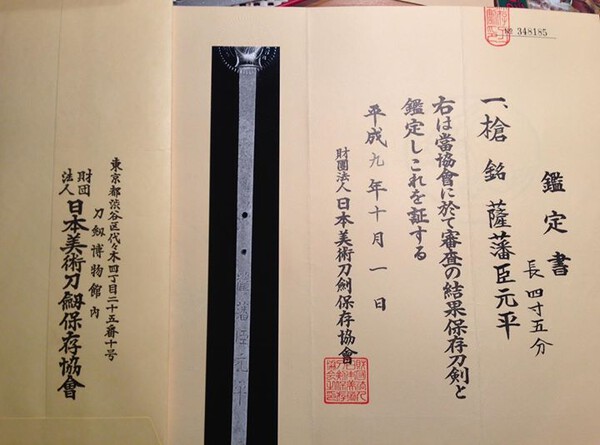 № 348185
鑑定書
一、槍 銘 薩藩臣元平
長四寸五分
右は當協會に於て審査の結果保存刀剣と
鑑定しこれを証する
平成九年十月一日
財團法人 日本美術刀剣保存協會
薩藩臣元平
東京都渋谷区代々木四丁目二十五番十号
刀剱博物館内
財団法人 日本美術刀劔保存協會